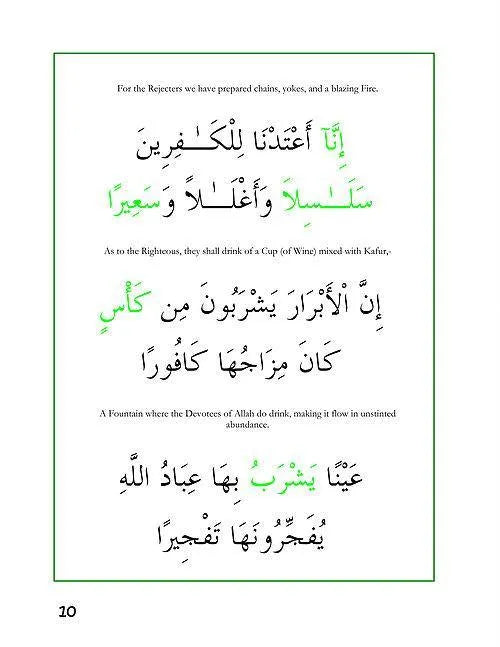 For the Rejecters we have prepared chains, yokes, and a blazing Fire.
إِنَّآ أَعْتَدْنَا لِلْكَـٰفِرِينَ
سَلَـٰسِلاَ وَأَغْلَـٰلاً وَسَعِيرًا
As to the Righteous, they shall drink of a Cup (of Wine) mixed with Kafur,-
إِنَّ اْلأَبْرَارَ يَشْرَبُونَ مِن كَأْسٍ
كَانَ مِزَاجُهَا كَافُورًا
A Fountain where the Devotees of Allah do drink, making it flow in unstinted
abundance.
عَيْنًا يَشْرَبُ بِهَا عِبَادُ اللَّهِ
يُفَجِّرُونَهَا تَفْجِيرًا
10